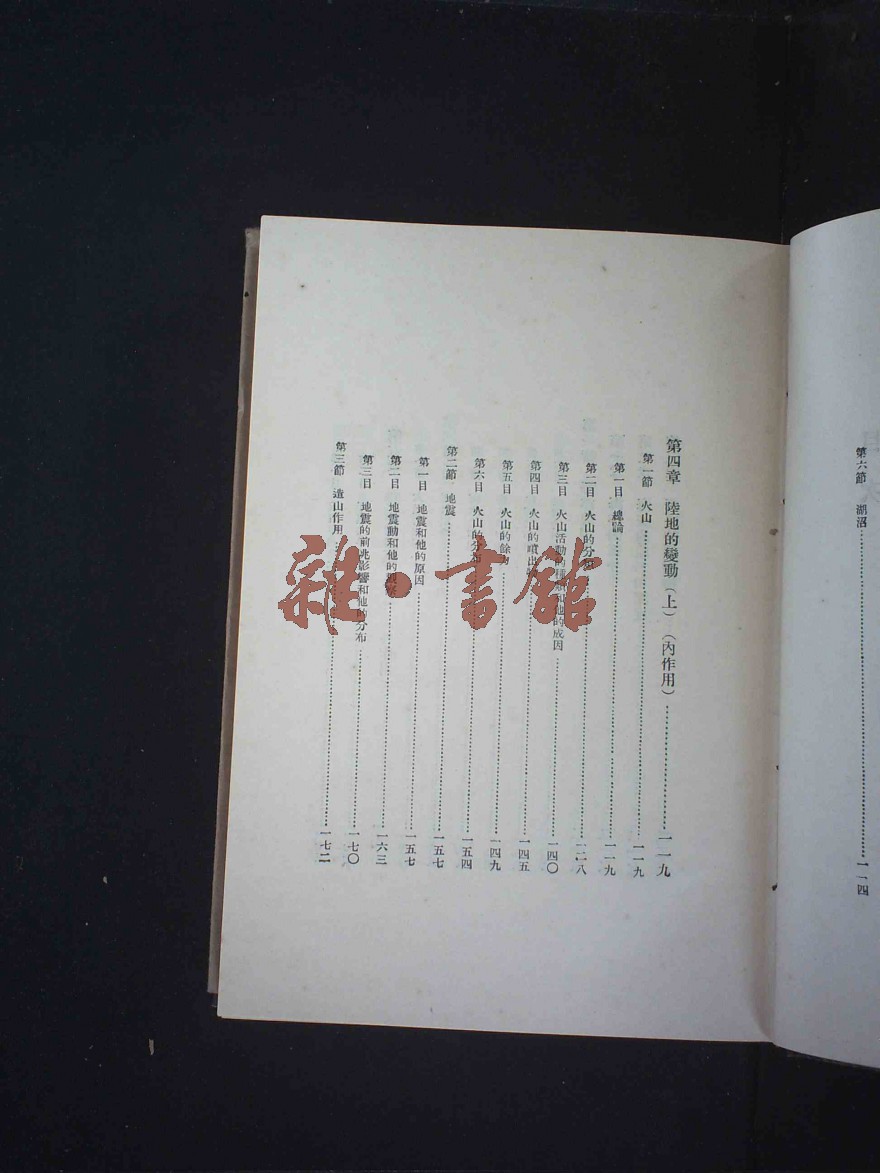 第六節 湖沼 一一四
第四章 陸地的變動(上)(內作用) 一一九
第一節 火山 一一九
第一目 總論 一一九
第二目 火山的分 一二八
第三目 火山活動 和他的成因 一四〇
第四目 火山的噴出 一四五
第五目 火山的餘 一四九
第六目 火山的分布 一五四
第二節 地震 一五七
第一目 地震和他的原因 一五七
第二目 地震動和他的 一六三
第三目 地震的前兆影響和他的分布 一七〇
第三節 造山作用 一七二
雜·書館